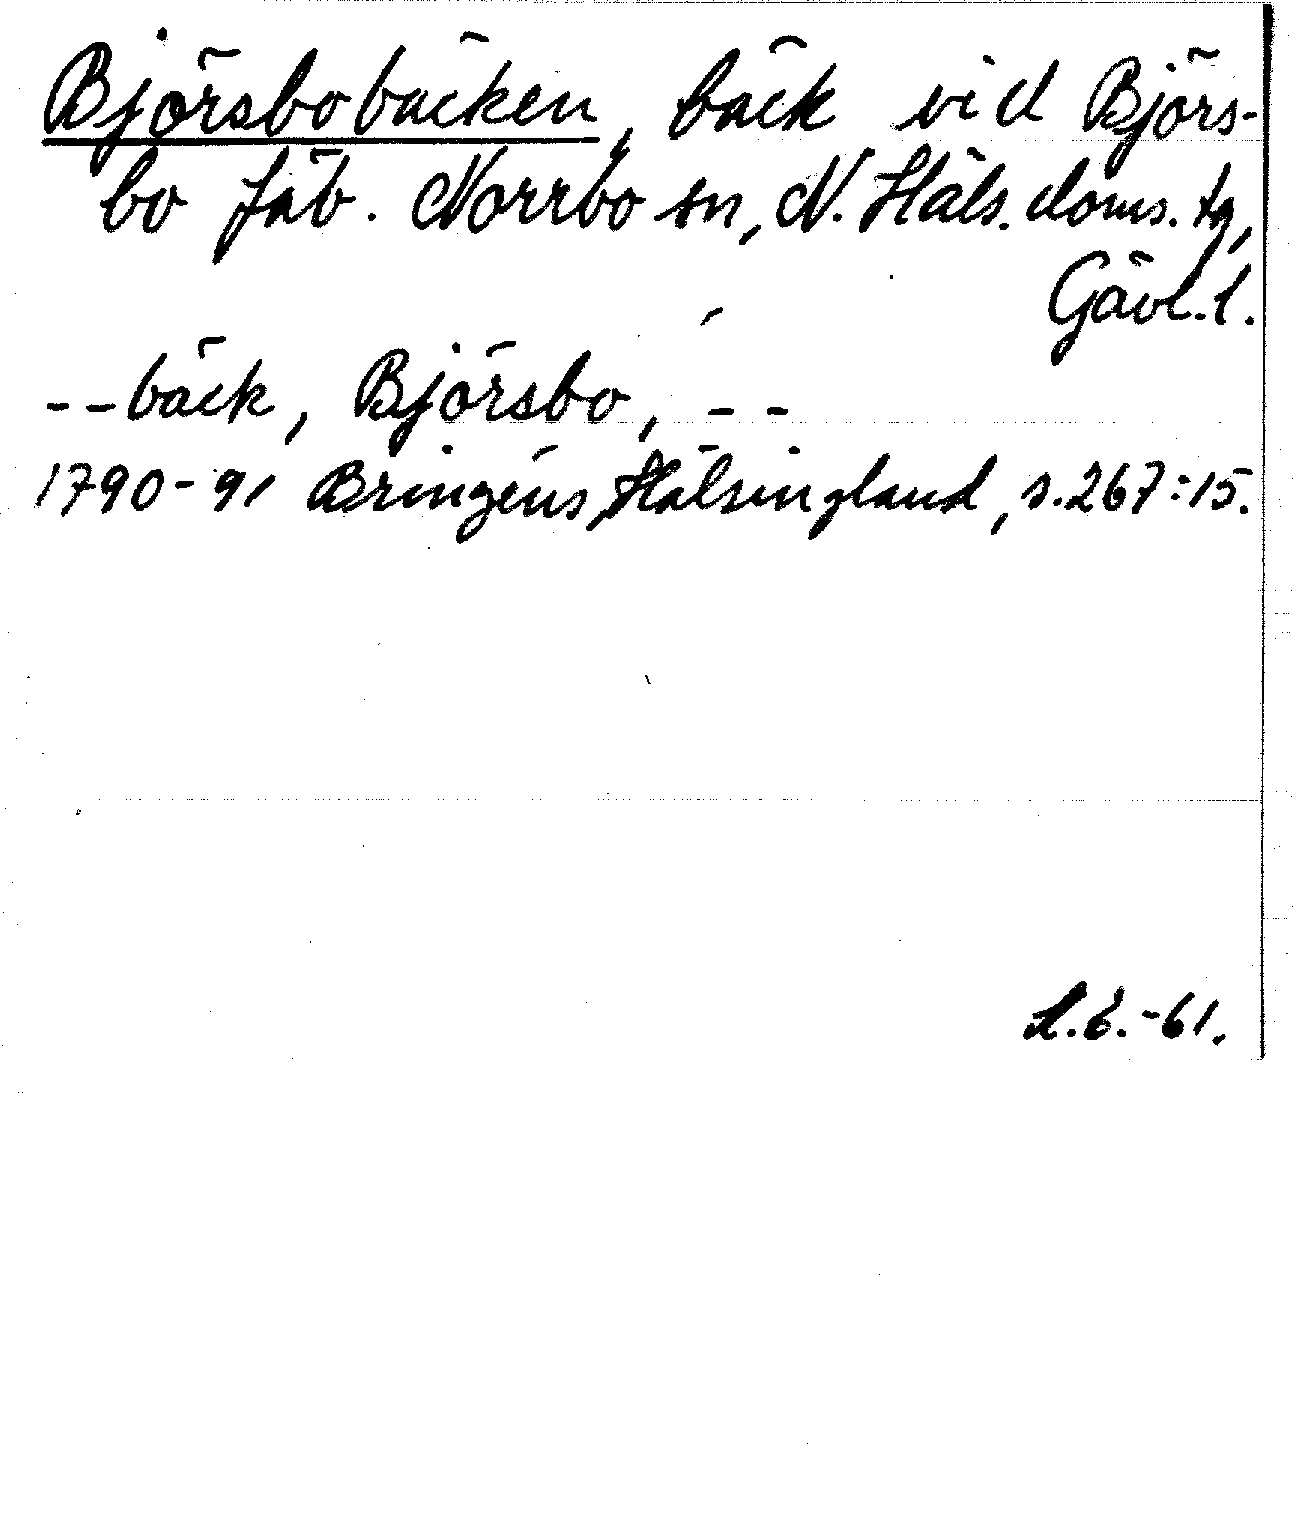 Björsbobäcken, bäck vid Björs-
bo fäb. Norrbo sn, N. Häls. doms. tg,
Gävl. l.
--bäck, Björsbo, --
1790-91 Bringéus, Hälsingland, s. 267:15.
L.E.-61.